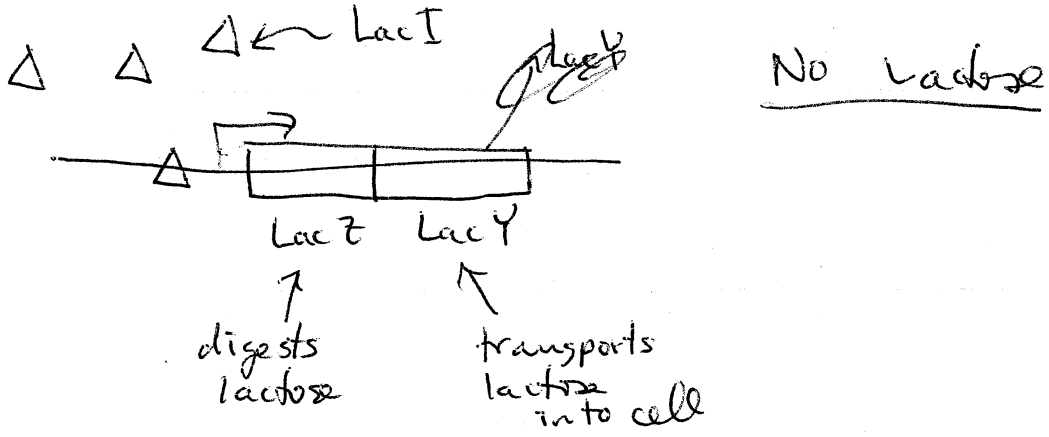 LacI
No Lactose
LacZ LacY
digests
lactose
transports
lactose
into cell